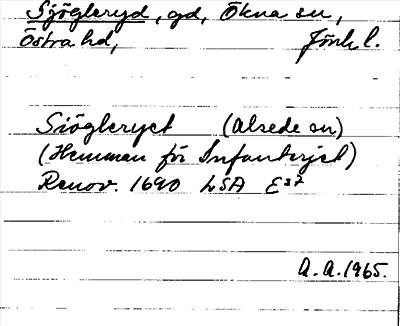 Sjögleryd, gd, Ökna sn,
Östra hd, Jönk. l.
Siögleryet (Alsede sn)
(Hemman för Infanterjet)
Renov. 1690 LSA E 37
A.A. 1965.